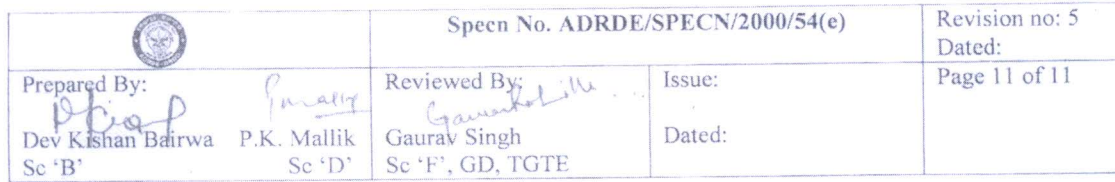 Specn No. ADRDE/SPECN/2000/54(e)
Revision no: 5
Dated:
Prepared By:
Dev Kishan Bairwa P.K. Mallik
Sc ‘B’ Sc ‘D’
Reviewed By:
Gaurav Singh
Sc ‘F’, GD, TGTE
Issue:
Dated:
Page 11 of 11